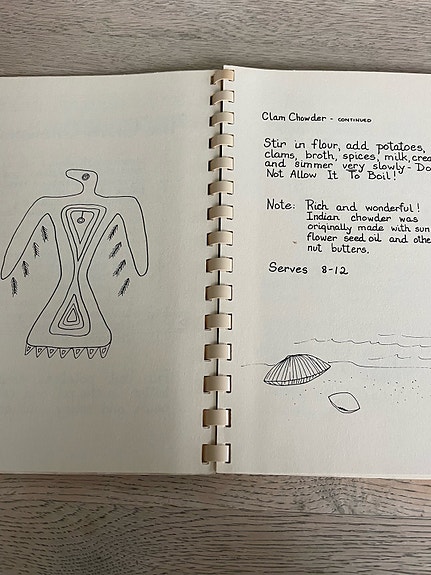 Clam Chowder - CONTINUED
Stir in flour, add potatoes,
clams, broth, spices, milk,
and simmer very slowly - Do
Not Allow It To Boil!
Note: Rich and wonderful!
Indian chowder was
originally made with sun
flower seed oil and
nut butters.
Serves 8-12